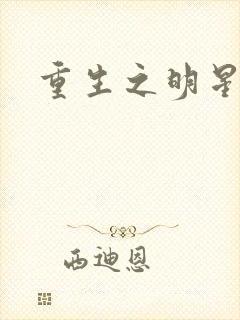 重生之明星
西迪恩